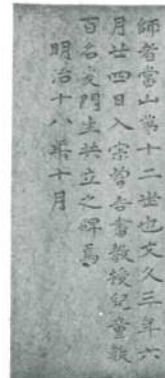 師者當山第十二世也文久三年六
月廿四日入宗曽書教授兒童数
百名門生共立之碑焉
明治十八年十月